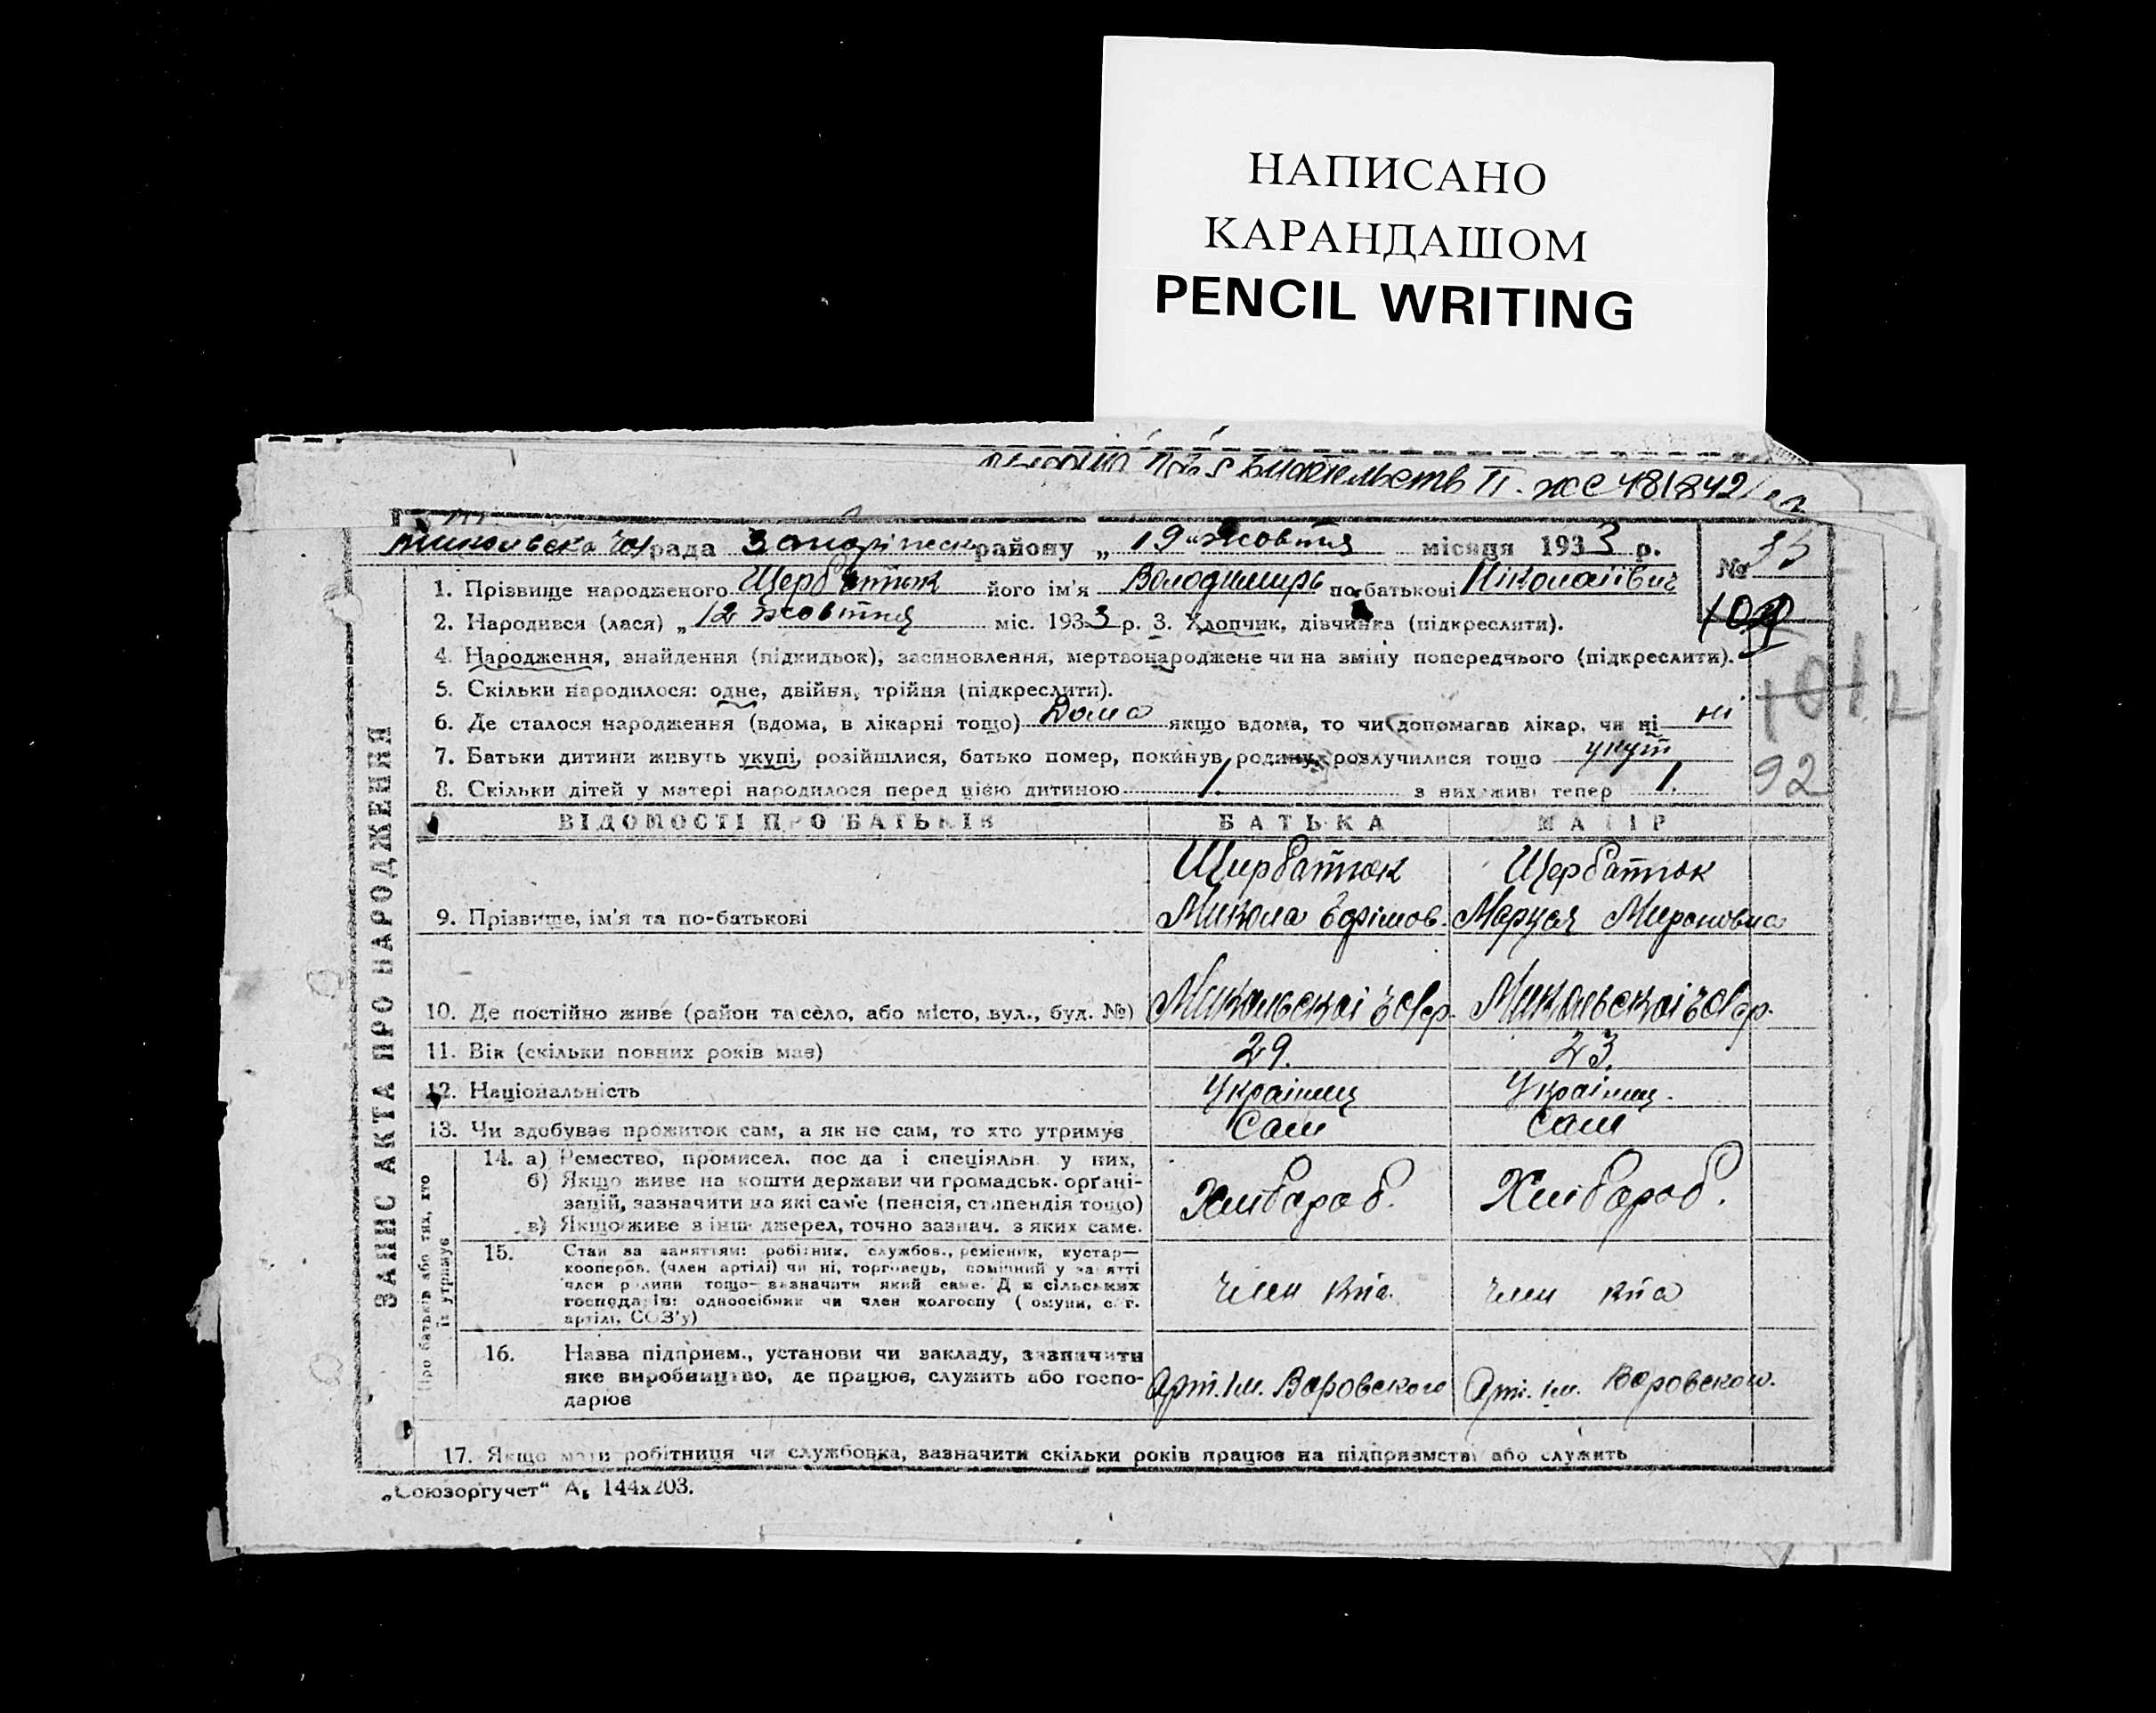 НАПИСАНО
КАРАНДАШОМ
PENCIL WRITING
П. ЖС 481842
рада району „19" жовтня місяця 1933 р.
№ 35
1. Прізвище народженого Щербатюк його ім'я Володимирь по-батькові Ніколаївич
2. Народився (лася) „12 жовтня міс. 1933 р. 3. Хлопчик, дівчинка (підкреслити).
4. Народження, знайдення (підкидьок), засиновлення, мертвонароджене чи на зміну попереднього (підкреслити).
5. Скільки народилося: одне, двійня, трійня (підкреслити).
6. Де сталося народження (вдома, в лікарні тощо) Дома якщо вдома, то чи допомагав лікар, чи ні ні
7. Батьки дитини живуть укупі, розійшлися, батько помер, покинув родину, розлучилися тощо укуп
92
8. Скільки дітей у матері народилося перед цією дитиною 1. з них живі тепер 1.
ЗАПИС АКТА ПРО НАРОДЖЕННЯ
ВІДОМОСТІ ПРО БАТЬКІВ БАТЬКА МАТІР
Щирбатюк Щербатюк
9. Прізвище, ім'я та по-батькові Микола Єфімов. Марця Мироновна
10. Де постійно живе (район та село, або місто, вул., буд. №) Микольської Микольської
11. Вік (скільки повних років має) 29. 23.
12. Національність Українец Українец.
13. Чи здобуває прожиток сам, а як не сам, то хто утримує Сам Сам
Про батьків або тих, хто їх утримує
14. а) Ремество, промисел, посада і спеціяльн. у них,
б) Якщо живе на кошти держави чи громадськ. орґані-
зацій, зазначити на які саме (пенсія, стипендія тощо)
в) Якщо живе з інш. джерел, точно зазнач. з яких саме.
Хлібороб. Хлібороб.
15. Стан за заняттям: робітник, службов., ремісник, кустар—
кооперов. (член артілі) чи ні, торговець, помічний у занятті
член родини тощо—зазначити який саме. Для сільських
господарів: одноосібник чи член колгоспу (комуни, с.-г.
артілі, СОЗ'у)
член к-па член к-па
16. Назва підприєм., установи чи закладу, зазначити
яке виробництво, де працює, служить або госпо-
дарює
Арт. Ім. Воровского Арт. Ім. Воровского.
17. Якщо мати робітниця чи службовка, зазначити скільки років працює на підприємстві або служить
„Союзоргучет" А5 144х203.